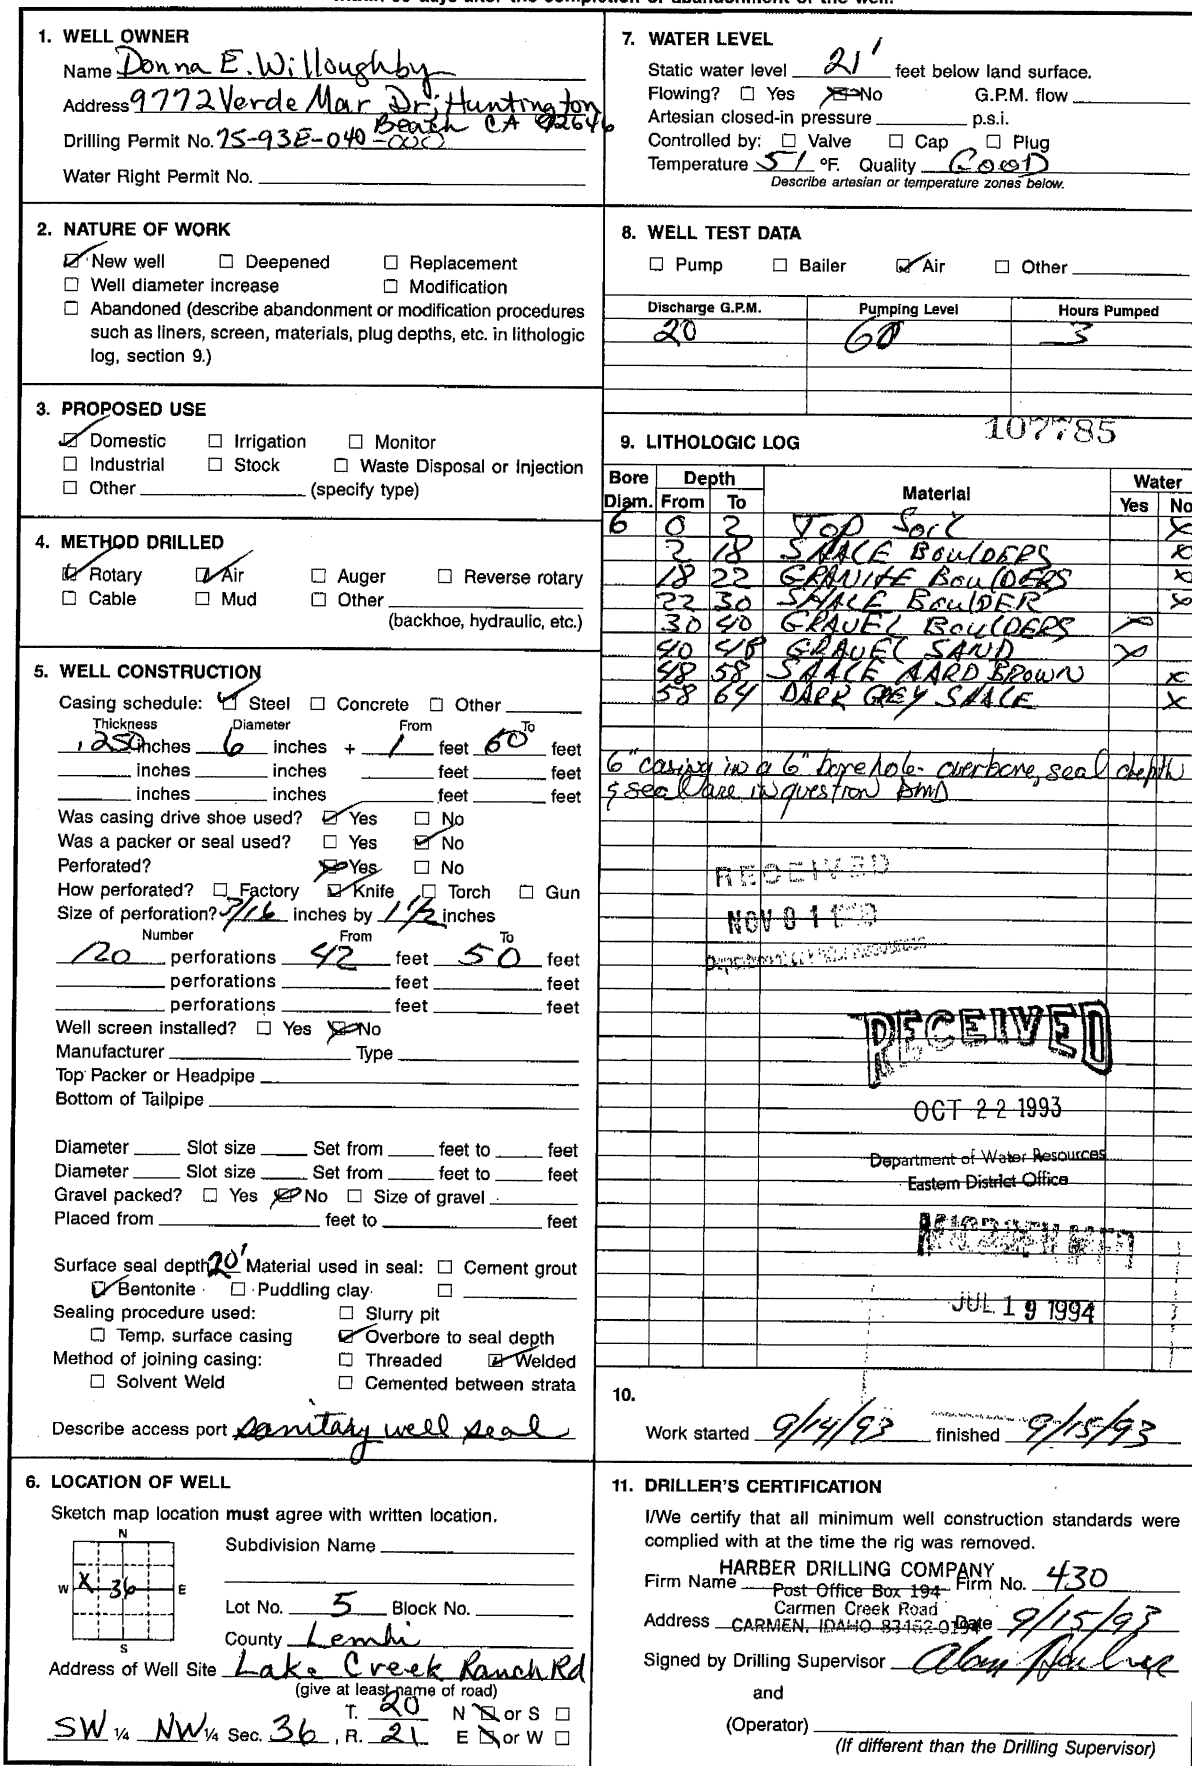 1. WELL OWNER
Name Donna E. Willoughby
Address 9772 Verde Mar Dr, Huntington
Beach CA 92646
Drilling Permit No. 75-93E-040-000
Water Right Permit No.
2. NATURE OF WORK
☑ New well ☐ Deepened ☐ Replacement
☐ Well diameter increase ☐ Modification
☐ Abandoned (describe abandonment or modification procedures
such as liners, screen, materials, plug depths, etc. in lithologic
log, section 9.)
3. PROPOSED USE
☑ Domestic ☐ Irrigation ☐ Monitor
☐ Industrial ☐ Stock ☐ Waste Disposal or Injection
☐ Other (specify type)
4. METHOD DRILLED
☑ Rotary ☑ Air ☐ Auger ☐ Reverse rotary
☐ Cable ☐ Mud ☐ Other
(backhoe, hydraulic, etc.)
5. WELL CONSTRUCTION
Casing schedule: ☑ Steel ☐ Concrete ☐ Other
Thickness Diameter From To
.250 inches 6 inches + 1 feet 60 feet
inches inches feet feet
inches inches feet feet
Was casing drive shoe used? ☑ Yes ☐ No
Was a packer or seal used? ☐ Yes ☑ No
Perforated? ☒ Yes ☐ No
How perforated? ☐ Factory ☑ Knife ☐ Torch ☐ Gun
Size of perforation? 3/16 inches by 1 1/2 inches
Number From To
120 perforations 42 feet 50 feet
perforations feet feet
perforations feet feet
Well screen installed? ☐ Yes ☒ No
Manufacturer Type
Top Packer or Headpipe
Bottom of Tailpipe
Diameter Slot size Set from feet to feet
Diameter Slot size Set from feet to feet
Gravel packed? ☐ Yes ☒ No ☐ Size of gravel
Placed from feet to feet
Surface seal depth 20' Material used in seal: ☐ Cement grout
☑ Bentonite ☐ Puddling clay ☐
Sealing procedure used: ☐ Slurry pit
☐ Temp. surface casing ☑ Overbore to seal depth
Method of joining casing: ☐ Threaded ☑ Welded
☐ Solvent Weld ☐ Cemented between strata
Describe access port sanitary well seal
6. LOCATION OF WELL
Sketch map location must agree with written location.
N
W X 36 E
S
Subdivision Name
Lot No. 5 Block No.
County Lemhi
Address of Well Site Lake Creek Ranch Rd
(give at least name of road)
T. 20 N ☒ or S ☐
SW ¼ NW ¼ Sec. 36, R. 21 E ☒ or W ☐
7. WATER LEVEL
Static water level 21' feet below land surface.
Flowing? ☐ Yes ☒ No G.P.M. flow
Artesian closed-in pressure p.s.i.
Controlled by: ☐ Valve ☐ Cap ☐ Plug
Temperature 51 °F. Quality GOOD
Describe artesian or temperature zones below.
8. WELL TEST DATA
☐ Pump ☐ Bailer ☑ Air ☐ Other
Discharge G.P.M. Pumping Level Hours Pumped
20 60 3
107785
9. LITHOLOGIC LOG
Bore Diam. Depth From To Material Water Yes No
6 0 2 TOP SOIL X
2 18 SHALE BOULDERS X
18 22 GRANITE BOULDERS X
22 30 SHALE BOULDER X
30 40 GRAVEL BOULDERS X
40 48 GRAVEL SAND X
48 58 SHALE HARD BROWN X
58 64 DARK GREY SHALE X
6" casing in a 6" borehole - overbore, seal depth
& seal are in question DMD
RECEIVED
NOV 01
Department of Water Resources
RECEIVED
OCT 22 1993
Department of Water Resources
Eastern District Office
JUL 19 1994
10.
Work started 9/14/93 finished 9/15/93
11. DRILLER'S CERTIFICATION
I/We certify that all minimum well construction standards were
complied with at the time the rig was removed.
HARBER DRILLING COMPANY
Firm Name Post Office Box 194 Firm No. 430
Carmen Creek Road
Address CARMEN, IDAHO 83462-0194 Date 9/15/93
Signed by Drilling Supervisor
and
(Operator)
(If different than the Drilling Supervisor)